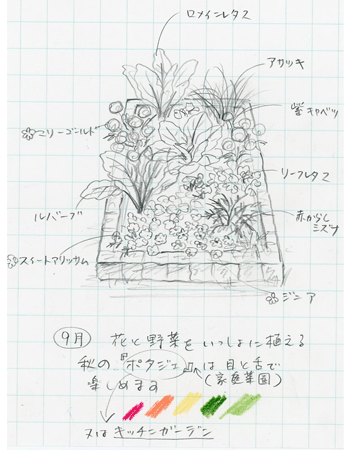 ロメインレタス
アサツキ
紫キャベツ
マリーゴールド
リーフレタス
ルバーブ
赤からし
ミズナ
スイートアリッサム
ジニア
9月 花と野菜をいっしょに植える
秋の『ポタジェ』は目と舌で
(家庭菜園)
楽しめます
又はキッチンガーデン